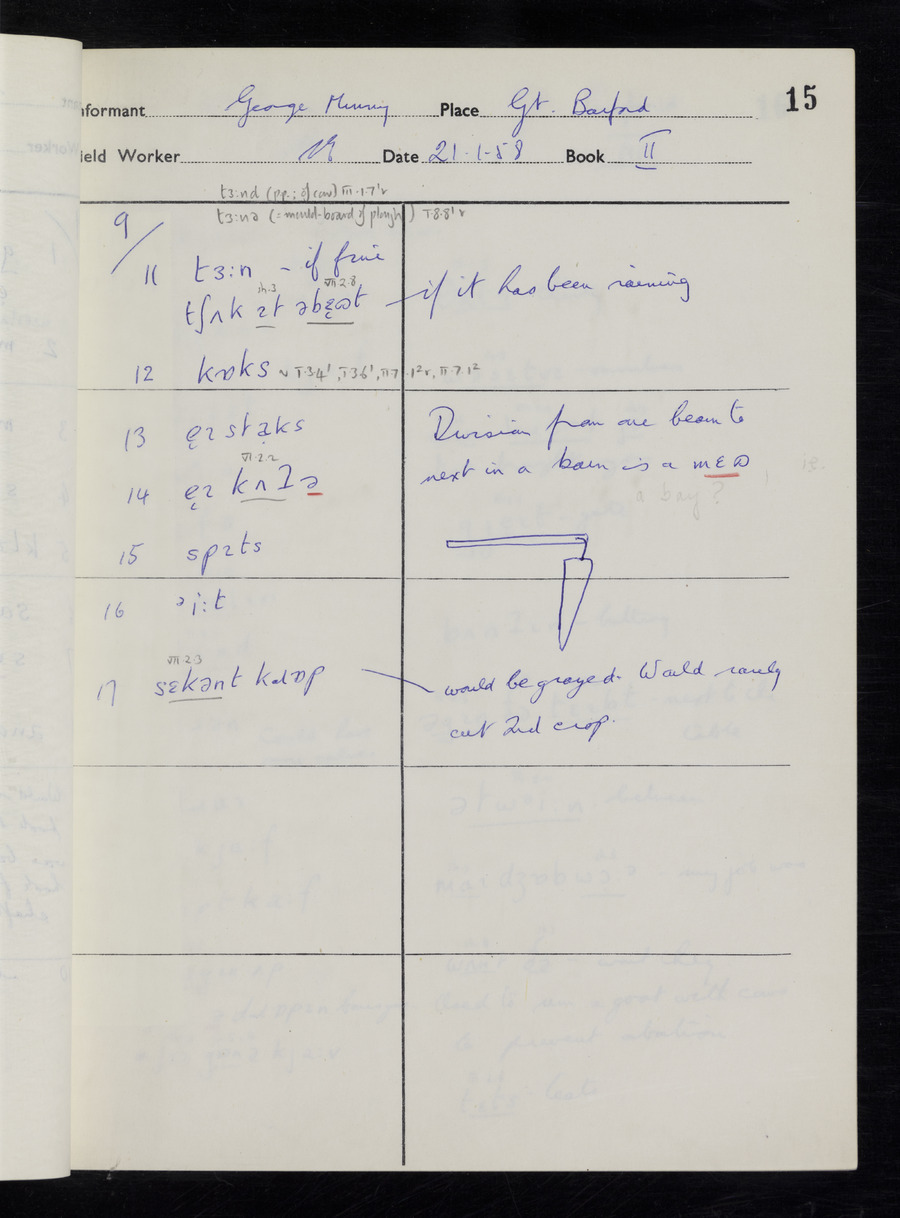 15
nformant George Place Gt. Barford
ield Worker Date 21·1·58 Book II
tɜ:nd (pp.; of cow) III·1·7¹r
tɜ:nə (= mould-board of plough) I·8·8¹r
9/
11 tɜ:n – if fine
VII·2·8
tʃʌk ɪt əbɛʊt — if it has been raining
12 kɒks ~ I·3·4¹, I·3·6¹, II·7·1²r, II·7·1²
13 ẹɪstaks
14 ẹɪ kʌɪə
VI·2·2
15 spɪts
Division from one beam to
next in a barn is a mɛʊ
a bay?
16 əi:t
VII·2·3
17 sɛkənt kɹɒp — would be grazed. Would rarely
cut 2nd crop.